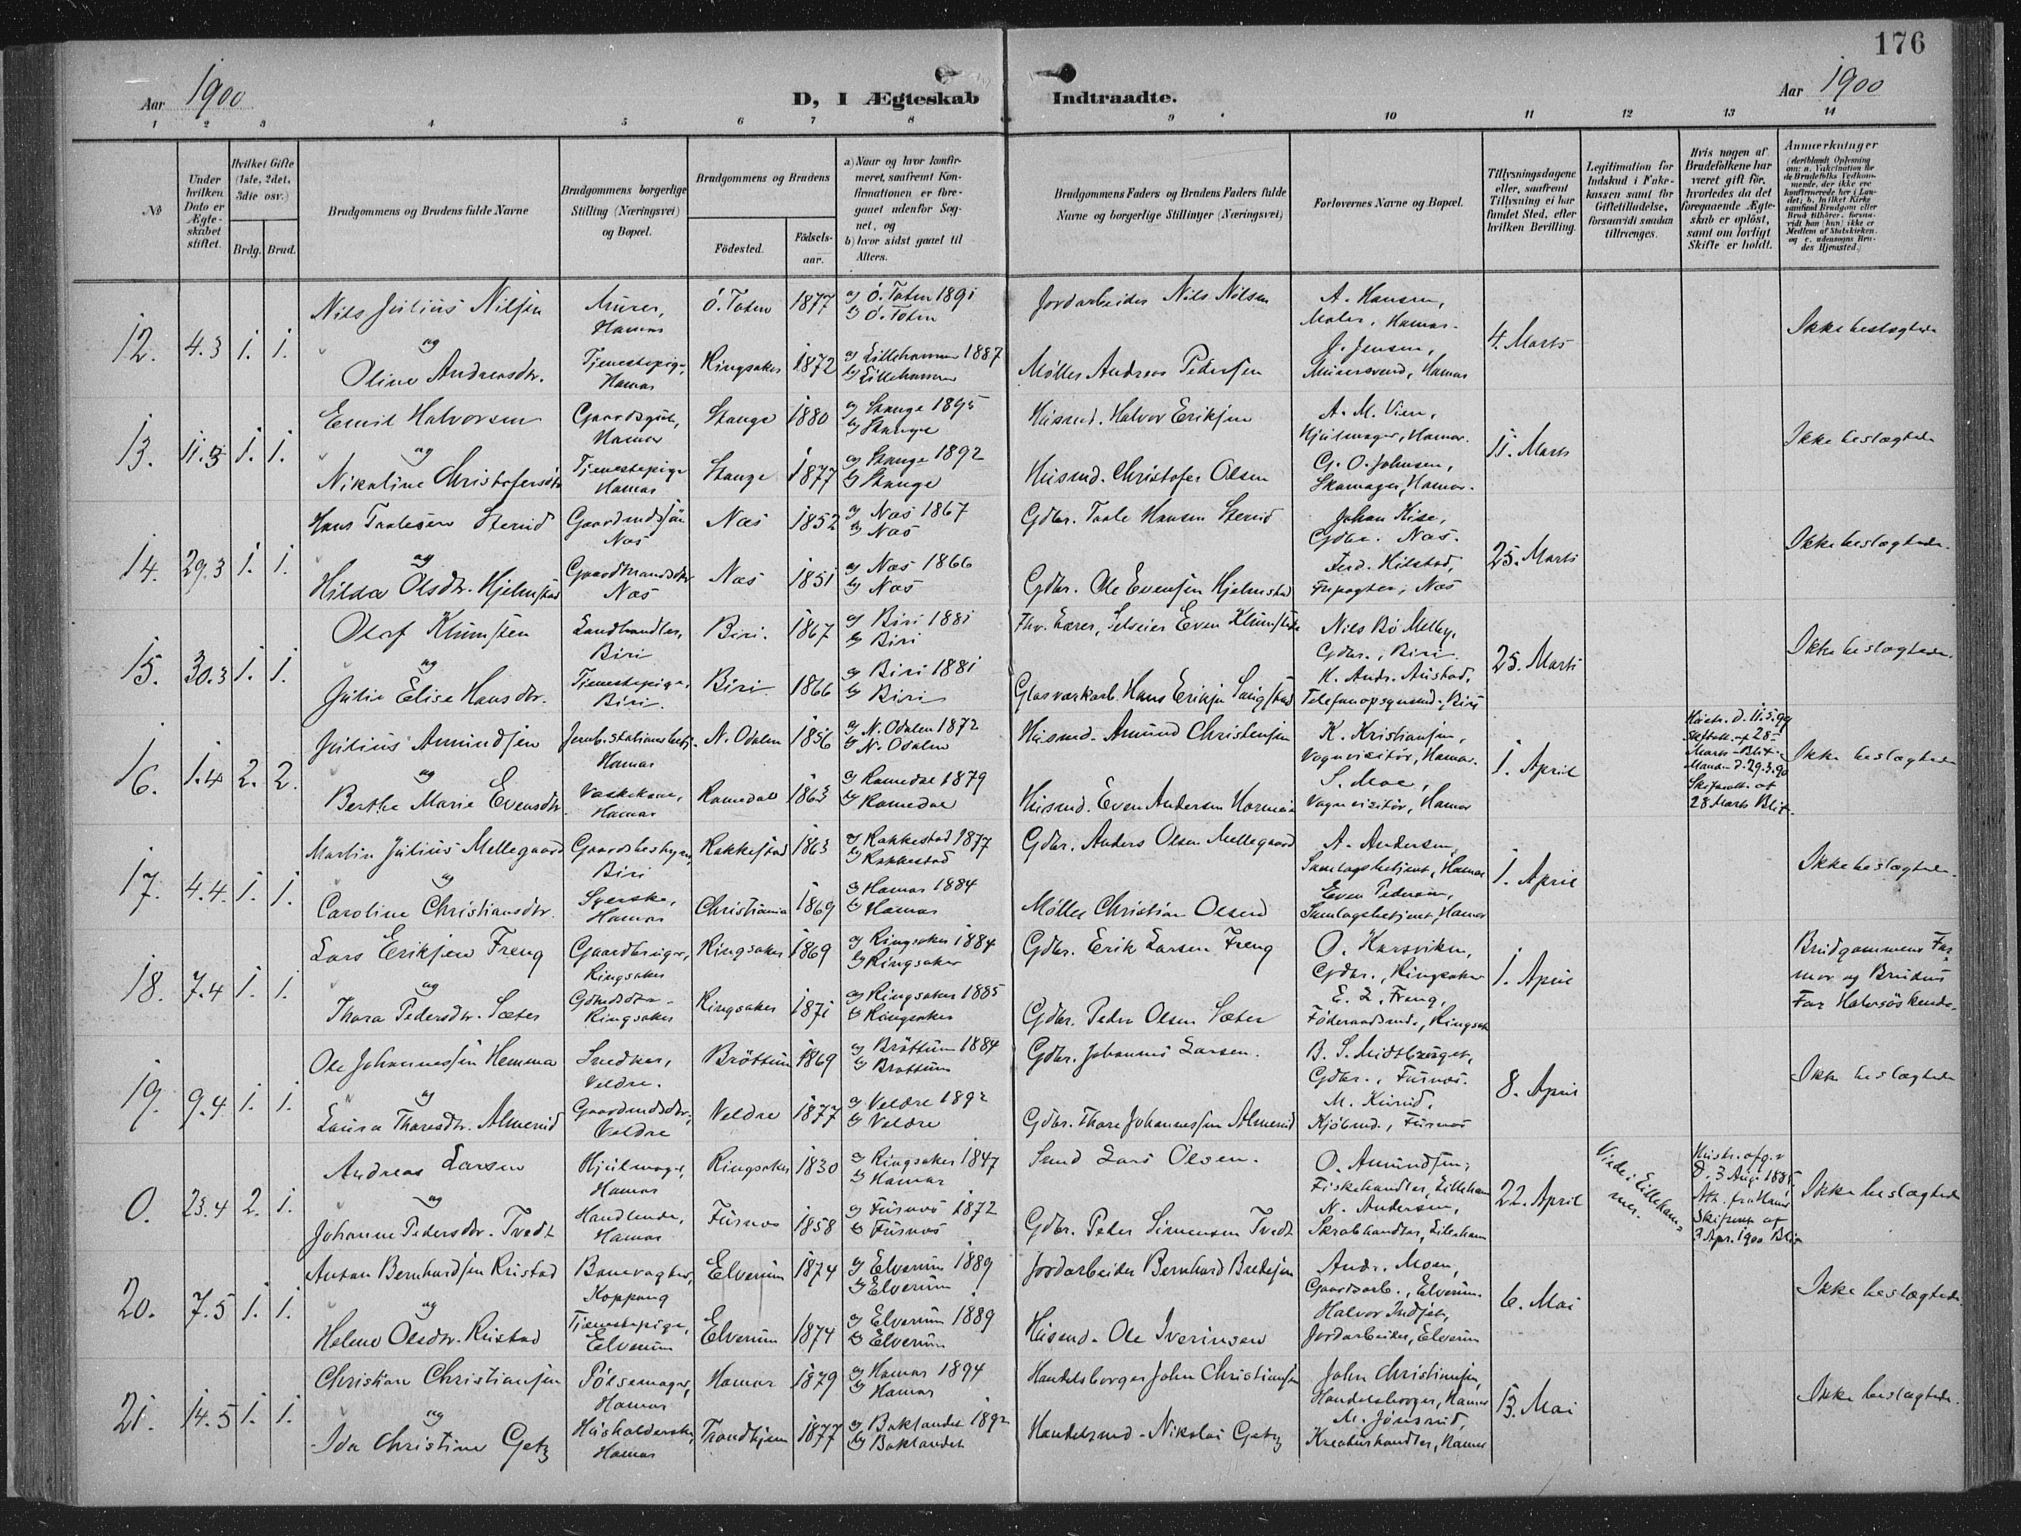 176
Aar 1900
D, I Ægteskab Indtraadte.
Aar 1900
1 2 3 4 5 6 7 8 9 10 11 12 13 14
No
Under hvilken Dato er Ægteskabet stiftet.
Hvilket Gifte (1ste, 2det, 3die osv.)
Brdg. Brud.
Brudgommens og Brudens fulde Navne
Brudgommens borgerlige Stilling (Næringsvei) og Bopæl.
Brudgommens og Brudens
Fødested.
Fødselsaar.
a) Naar og hvor konfirmeret, saafremt Konfirmationen er foregaaet udenfor Sognet, og
b) hvor sidst gaaet til Alters.
Brudgommens Faders og Brudens Faders fulde Navne og borgerlige Stillinger (Næringsvei)
Forlovernes Navne og Bopæl.
Tillysningsdagene eller, saafremt Tillysning ei har fundet Sted, efter hvilken Bevilling.
Legitimation for Indskud i Enkekassen samt for Giftetilladelse, forsaavidt saadan tiltrænges.
Hvis nogen af Brudefolkene har været gift før, hvorledes da det foregaaende Ægteskab er opløst, samt om lovligt Skifte er holdt.
Anmærkninger
12. 4.3 1. 1. Nils Julius Nilsen Murer, Hamar Ö. Toten 1877 a) Ö. Toten 1891 b) Ö. Toten Jordarbeider Nils Nilsen A. Hansen, Maler, Hamar. 4. Marts Ikke beslægtede
og
Oline Andreasdtr. Tjenestepige, Hamar Ringsaker 1872 a) Lillehammer 1887 b) Lillehammer Møller Andreas Pedersen J. Jensen, Murersvend, Hamar
13. 11.3 1. 1. Emil Halvorsen Gaardsgut, Hamar Stange 1880 a) Stange 1895 b) Stange Husmd. Halvor Eriksen A. M. Vien, Hjulmager, Hamar. 11. Marts Ikke beslægtede
og
Nikoline Christofersdtr Tjenestepige Hamar Stange 1877 a) Stange 1892 b) Stange Husmd. Christofer Olsen G. O. Johnsen, Skomager, Hamar.
14. 29.3 1. 1. Hans Taalesen Sterud Gaardmdssøn Næs Næs 1852 a) Næs 1867 b) Næs Gdbr. Taale Hansen Sterud Johan Kise, Gdbr. Næs. 25. Marts Ikke beslægtede.
og
Hilda Olsdtr. Hjelmstad Gaardmandsdtr Næs Næs 1851 a) Næs 1866 b) Næs Gdbr. Ole Evensen Hjelmstad Ferd. Hilstad, Næs
15. 30.3 1. 1. Olaf Klumsten Landhandler, Biri Biri. 1867 a) Biri 1881 b) Biri Fhv. Lærer, Selveier Even Nils Bö Melby, Gdbr., Biri. 25. Marts Ikke beslægtede.
og
Julie Elise Hansdtr. Tjenestepige, Biri. Biri 1866 a) Biri 1881 b) Biri Glasværkarb. Hans Eriksen H. Andr. Biri
16. 1.4 2. 2. Julius Amundsen Jernb.stationsbetj. Hamar N. Odalen 1856 a) N. Odalen 1872 b) N. Odalen Husmd. Amund Christensen K. Kristiansen, Vognvisitör, Hamar. 1. April Ikke beslægtede
og
Berthe Marie Evensdtr. Vaskekone, Hamar Romedal 1863 a) Romedal 1879 b) Romedal Husmd. Even Andersen S. Moe, Vognvisitör, Hamar
Hustr. d. 11.5.99 28- Marts Manden d. 29.3.90 28 Marts
17. 4.4. 1. 1. Martin Julius Mellegaard Gaardsbestyrer, Biri Rakkestad 1863 a) Rakkestad 1877 b) Rakkestad Gdbr. Anders Olsen Mellegaard A. Andersen, Samlagsbetjent, Hamar 1. April Ikke beslægtede.
og
Caroline Christiansdtr. Syerske, Hamar Christiania 1869 a) Hamar 1884 b) Hamar Møller Christian Olsen Even Pedersen, Samlagsbetjent, Hamar
18. 7.4 1. 1. Lars Eriksen Freng Gaardbruger, Ringsaker Ringsaker 1869 a) Ringsaker 1884 b) Ringsaker Gdbr. Erik Larsen Freng O. Karsviken, Gdbr., Ringsaker 1. April Brudgommens Farmor og Brudens Far Halvsöskende.
og
Thora Pedersdtr. Sæter Gdmdsdtr. Ringsaker Ringsaker 1871 a) Ringsaker 1885 b) Ringsaker Gdbr. Peder Olsen Sæter E. L. Freng, Föderaadsmd., Ringsak
19. 9.4 1. 1. Ole Johannessen Hemma Snedker, Veldre. Bröttum 1869 a) Bröttum 1884 b) Brottum Gdbr. Johannes Larsen. B. S. Midtberget, Gdbr., Furnæs. 8. April Ikke beslægtede
og
Laura Thoresdtr. Almerud Gaardmdsdtr, Veldre Veldre 1877 a) Veldre 1892 b) Veldre Gdbr. Thore Johannessen Almerud M. Kjöbmd., Furnæs
0. 23.4 2. 1. Andreas Larsen Hjulmager Hamar Ringsaker 1830 a) Ringsaker 1847 b) Hamar Smed Lars Olsen. O. Amundsen, Fiskehandler, Lilleham 22. April Viede i Lillehammer. Ikke beslægtede
og
Johanne Pedersdtr. Tvedt Handlende, Hamar Furnæs 1858 a) Furnæs 1872 b) Furnæs Gdbr. Peder Simensen Tvedt N. Andersen, Skrabhandler, Lilleham
Hustr. d. 3 Aug. 1885. 3 Apr. 1900
20. 7.5 1. 1. Anton Bernhardsen Rustad Banevogter, Koppang Elverum 1874 a) Elverum 1889 b) Elverum Jordarbeider Bernhard Andr. Moen, Gaardsarb., Elverum. 6. Mai Ikke beslægtede.
og
Helene Olsdtr. Rustad Tjenestepige, Elverum Elverum 1874 a) Elverum 1889 b) Elverum Husmd. Ole Iverinsen Halvor Indset, Jordarbeider, Elverum
21. 14.5 1. 1. Christian Christiansen Pölsemager, Hamar Hamar 1879 a) Hamar 1894 b) Hamar Handelsborger John Christiansen John Christiansen, Handelsborger, Hamar 13. Mai Ikke beslægtede.
og
Ida Christine Getz Husholderske, Hamar Trondhjem 1877 a) Baklandet 1892 b) Baklandet Handelsmd. Nikolai Getz M. Jönsrud, Kreaturhandler, Hamar